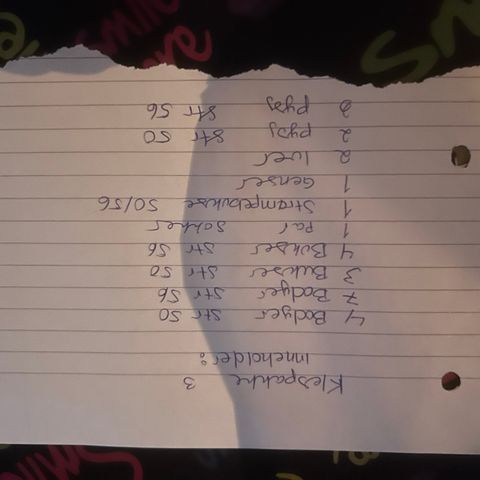 Klespakke 3
inneholder:
4 Bodyer str 50
7 Bodyer str 56
3 Bukser str 50
4 Bukser str 56
1 par sokker
1 Strømpebukse 50/56
1 Genser
2 luer
2 pysj str 50
2 pysj str 56